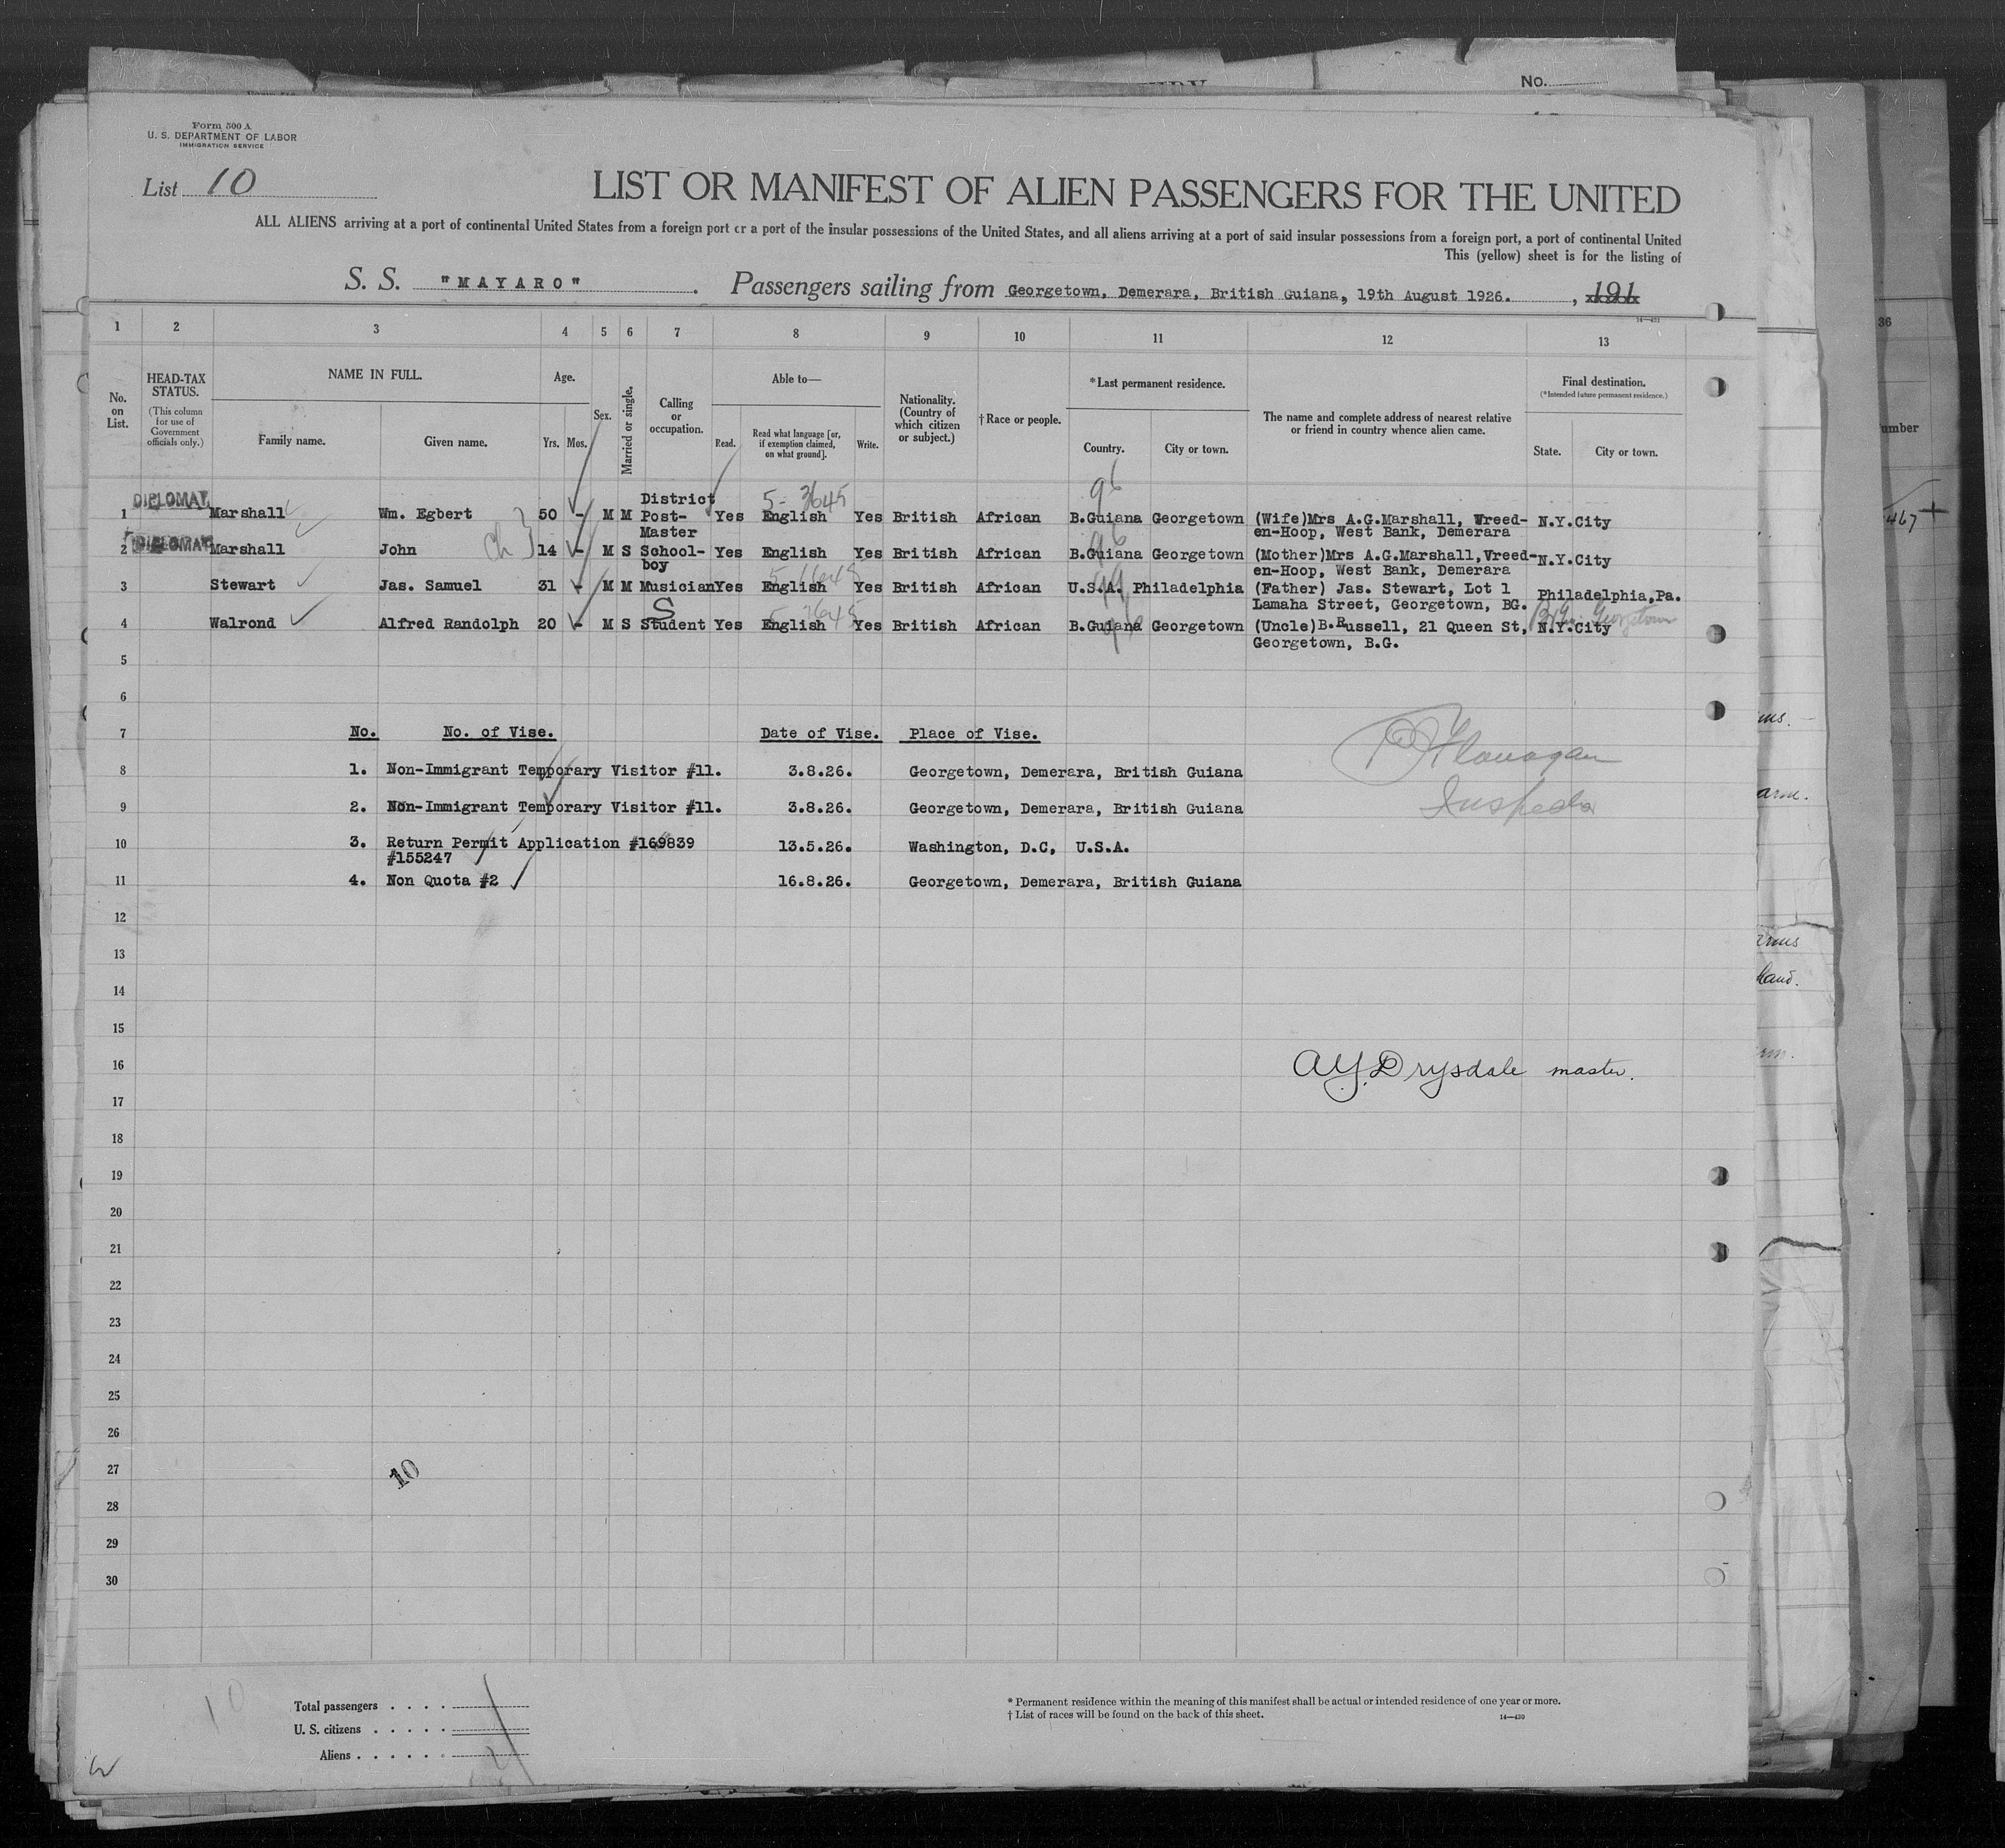 No.
Form 500 A
U. S. DEPARTMENT OF LABOR
IMMIGRATION SERVICE
List 10
LIST OR MANIFEST OF ALIEN PASSENGERS FOR THE UNITED
ALL ALIENS arriving at a port of continental United States from a foreign port or a port of the insular possessions of the United States, and all aliens arriving at a port of said insular possessions from a foreign port, a port of continental United
This (yellow) sheet is for the listing of
S. S. "MAYARO". Passengers sailing from Georgetown, Demerara, British Guiana, 19th August 1926. , 191
14—431
1 2 3 4 5 6 7 8 9 10 11 12 13
36
No. on List.
HEAD-TAX STATUS. (This column for use of Government officials only.)
NAME IN FULL.
Family name. Given name.
Age.
Yrs. Mos.
Sex.
Married or single.
Calling or occupation.
Able to—
Read. Read what language [or, if exemption claimed, on what ground]. Write.
Nationality. (Country of which citizen or subject.)
† Race or people.
* Last permanent residence.
Country. City or town.
The name and complete address of nearest relative or friend in country whence alien came.
Final destination.
(* Intended future permanent residence.)
State. City or town.
umber
DIPLOMAT District 5-3645 96
1 Marshall Wm. Egbert 50 - M M Post- Yes English Yes British African B.Guiana Georgetown (Wife)Mrs A.G.Marshall, Vreed- N.Y.City
Master en-Hoop, West Bank, Demerara
DIPLOMAT ch 96
2 Marshall John 14 - M S School- Yes English Yes British African B.Guiana Georgetown (Mother)Mrs A.G.Marshall,Vreed- N.Y.City
boy en-Hoop, West Bank, Demerara
3 Stewart Jas. Samuel 31 - M M Musician Yes English Yes British African U.S.A. Philadelphia (Father) Jas. Stewart, Lot 1 Philadelphia,Pa.
Lamaha Street, Georgetown, BG.
S Georgetown
4 Walrond Alfred Randolph 20 - M S Student Yes English Yes British African B.Guiana Georgetown (Uncle)B.Russell, 21 Queen St, N.Y.City
Georgetown, B.G.
5
6
7 No. No. of Vise. Date of Vise. Place of Vise.
8 1. Non-Immigrant Temporary Visitor #11. 3.8.26. Georgetown, Demerara, British Guiana
Flanagan
9 2. Non-Immigrant Temporary Visitor #11. 3.8.26. Georgetown, Demerara, British Guiana
Inspector
10 3. Return Permit Application #169839 13.5.26. Washington, D.C, U.S.A.
#155247
11 4. Non Quota #2 16.8.26. Georgetown, Demerara, British Guiana
12
13
14
15
16 A.Y. Drysdale master.
17
18
19
20
21
22
23
24
25
26
27
10
28
29
30
10
Total passengers . . . .
U. S. citizens . . . . .
Aliens . . . . . .
* Permanent residence within the meaning of this manifest shall be actual or intended residence of one year or more.
† List of races will be found on the back of this sheet.
14—430